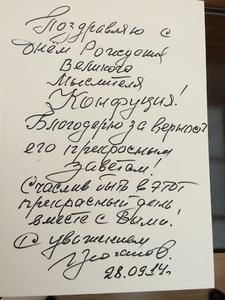 Поздравляю с
Днём Рождения
Великого
Мыслителя
Конфуция!
Благодарю за верность
его прекрасным
Заветам!
Счастлив быть в этот
прекрасный день
вместе с Вами!
С уважением
28.09.14г.